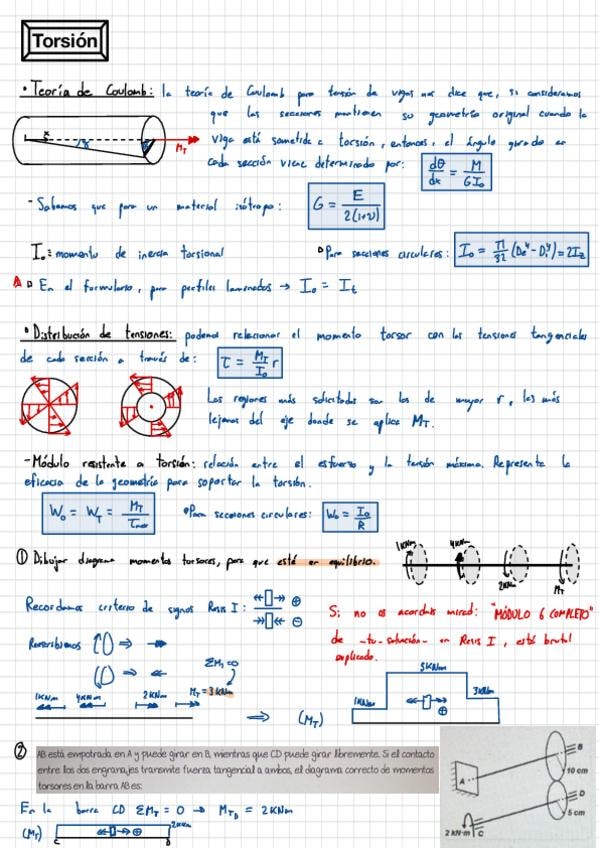 Torsión
• Teoría de Coulomb: la teoría de Coulomb para torsión de vigas nos dice que, si consideramos
que las secciones mantienen su geometría original cuando la
viga está sometida a torsión, entonces, el ángulo girado en
cada sección viene determinado por: dθ/dx = M/GI₀
x
M_T
- Sabemos que para un material isótropo: G = E/2(1+ν)
I₀ ≡ momento de inercia torsional
Para secciones circulares: I₀ = π/32 (De⁴ - Di⁴) = 2I_z
En el formulario, para perfiles laminados → I₀ = I_t
• Distribución de tensiones: podemos relacionar el momento torsor con las tensiones tangenciales
de cada sección a través de: τ = M_T/I₀ r
Las regiones más solicitadas son las de mayor r, las más
lejanas del eje donde se aplica M_T.
- Módulo resistente a torsión: relación entre el esfuerzo y la tensión máxima. Representa la
eficacia de la geometría para soportar la torsión.
W₀ = W_T = M_T/τ_max
Para secciones circulares: W₀ = I₀/R
① Dibujar diagrama momentos torsores, para que esté en equilibrio.
1KNm 4KNm 2KNm M_T
Recordamos criterio de signos Resis I: ⊕
⊖
Si no os acordáis mirad: "MÓDULO 6 COMPLETO"
de -tu-solución- en Resis I, está brutal
explicado.
Reescribimos
ΣM_T=0
1KNm 4KNm 2KNm M_T = 3KNm
⇒ (M_T) 1KNm 5KNm 3KNm ⊕
② AB está empotrada en A y puede girar en B, mientras que CD puede girar libremente. Si el contacto
entre los dos engranajes transmite fuerza tangencial a ambos, el diagrama correcto de momentos
torsores en la barra AB es:
A B 10 cm
D 5 cm
2 kN·m C
En la barra CD ΣM_T = 0 → M_TD = 2KNm
(M_T) ⊕ 2KNm
C D